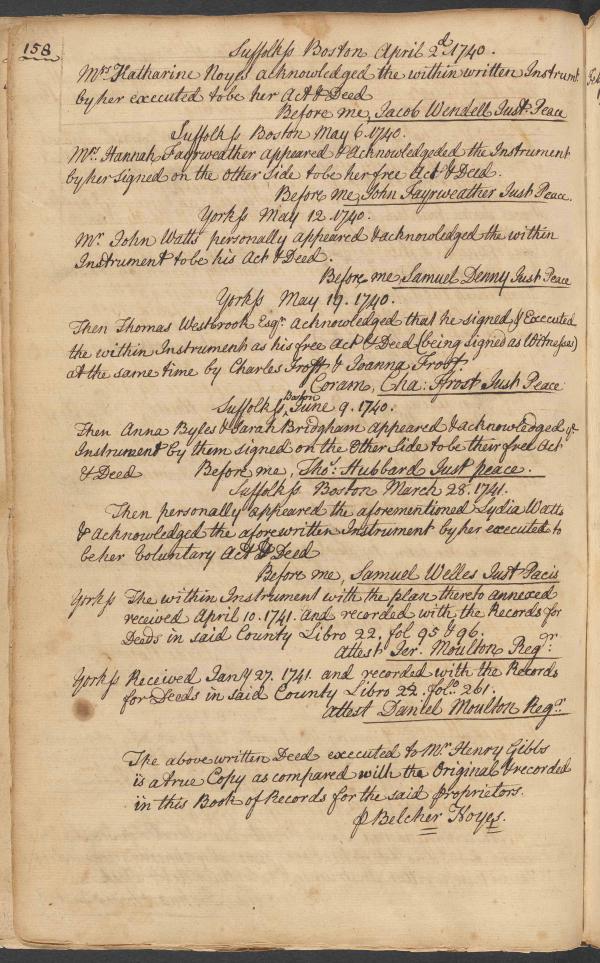 158
Suffolk ss Boston April 2d. 1740.
Mrs. Katharine Noyes acknowledged the within written Instrumt
by her executed to be her Act & Deed
Before me, Jacob Wendell Just: Peace
Suffolk ss Boston May 6. 1740.
Mrs. Hannah Fayrweather appeared & Acknowledgeded the Instrument
by her signed on the other Side to be her free Act & Deed.
Before me John Fayrweather Just Peace.
York ss May 12. 1740.
Mr. John Watts personally appeared & acknowledged the within
Instrument to be his Act & Deed.
Before me Samuel Denny Just Peace
York ss May 19. 1740.
Then Thomas Westbrook Esqr. acknowledged that he signed & Executed
the within Instrument as his free Act & Deed (being signed as Witnesses)
at the same time by Charles Frost & Joanna Frost.
Coram, Cha: Frost Just Peace
Suffolk ss, Boston June 9. 1740.
Then Anna Byles & Sarah Bridgham appeared & acknowledged ye
Instrument by them signed on the Other Side to be their free Act
& Deed Before me, Tho: Hubbard Just peace.
Suffolk ss Boston March 28. 1741.
Then personally appeared the aforementioned Lydia Watts
& acknowledged the aforewritten Instrument by her executed to
be her Voluntary Act & Deed
Before me, Samuel Welles Just Pacis
York ss The within Instrument with the plan thereto annexed
received April 10. 1741. and recorded with the Records for
Deeds in said County Libro 22. fol 95 & 96.
Attest Jer. Moulton Regr:
York ss Received Jany 27. 1741. and recorded with the Records
for Deeds in said County Libro 22. folo. 261.
Attest Daniel Moulton Regr.
The above written Deed executed to Mr. Henry Gibbs
is a true Copy as compared with the Original & recorded
in this Book of Records for the said Proprietors.
p Belcher Noyes.